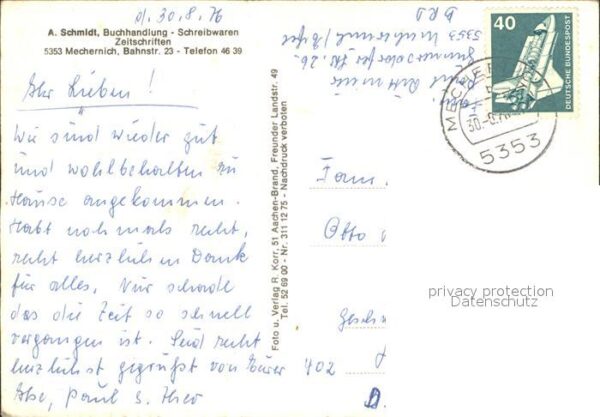 d. 30.8.76
A. Schmidt, Buchhandlung - Schreibwaren
Zeitschriften
5353 Mechernich, Bahnstr. 23 - Telefon 46 39
Ihr Lieben!
Wir sind wieder gut
und wohlbehalten zu
Hause angekommen.
Habt nochmals recht,
recht herzlichen Dank
für alles. Nur schade
das die Zeit so schnell
vergangen ist. Seid recht
herzlichst gegrüßt von Eurer
Paul u. Theo
Foto u. Verlag R. Korr, 51 Aachen-Brand, Freunder Landstr. 49
Tel. 52 69 00 - Nr. 311 12 75 - Nachdruck verboten
Paul
26
5353 Mechernich/Eifel
BRD
40
DEUTSCHE BUNDESPOST
MECHER
30.-8.
5353
Fam.
Otto
402
privacy protection
Datenschutz